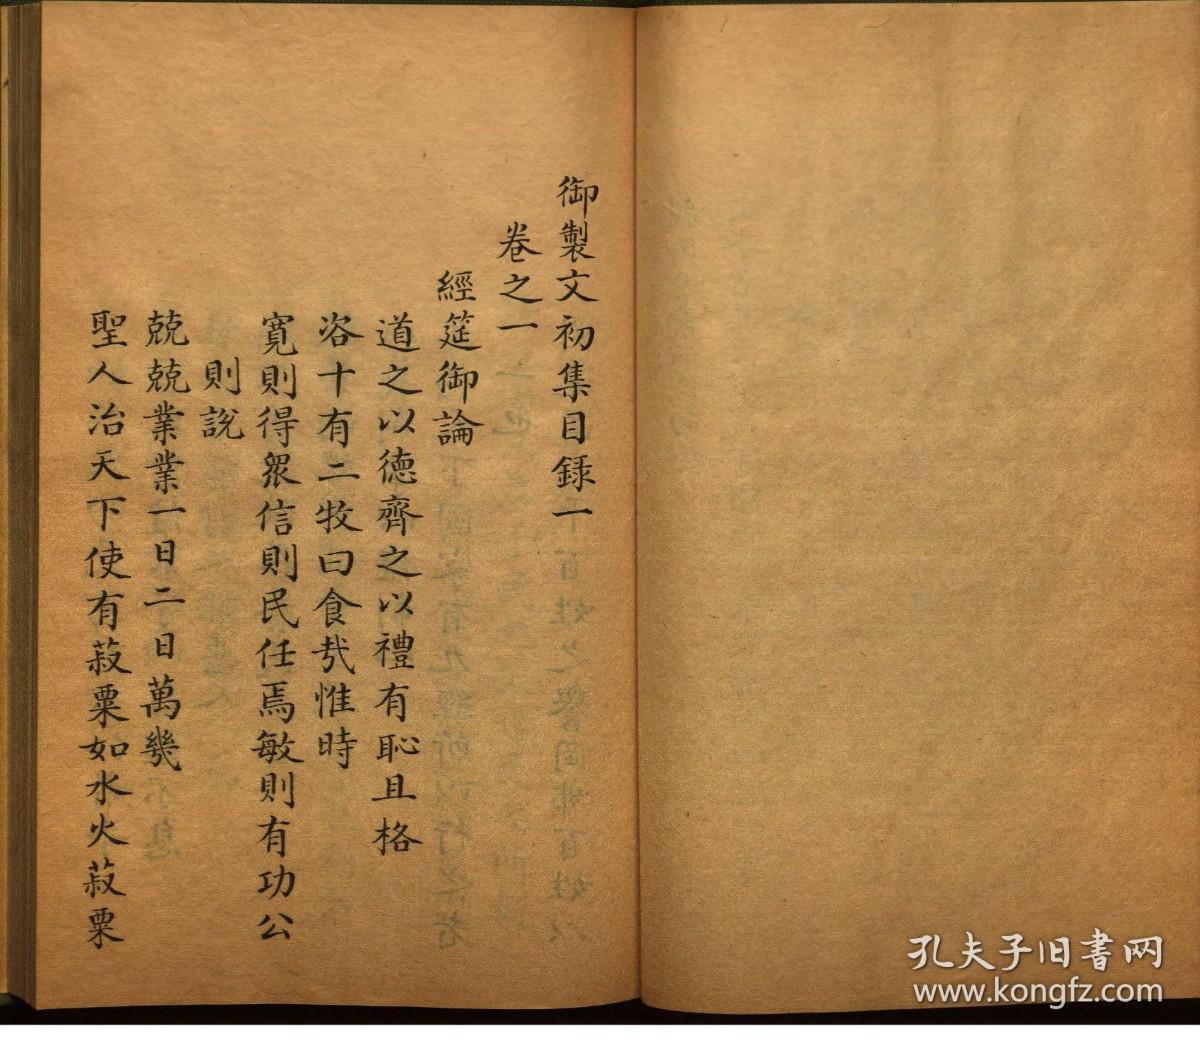 御製文初集目録一
卷之一
經筵御論
道之以德齊之以禮有恥且格
咨十有二牧曰食哉惟時
寬則得衆信則民任焉敏則有功公
則說
兢兢業業一日二日萬幾
聖人治天下使有菽粟如水火菽粟
孔夫子旧书网
www.kongfz.com